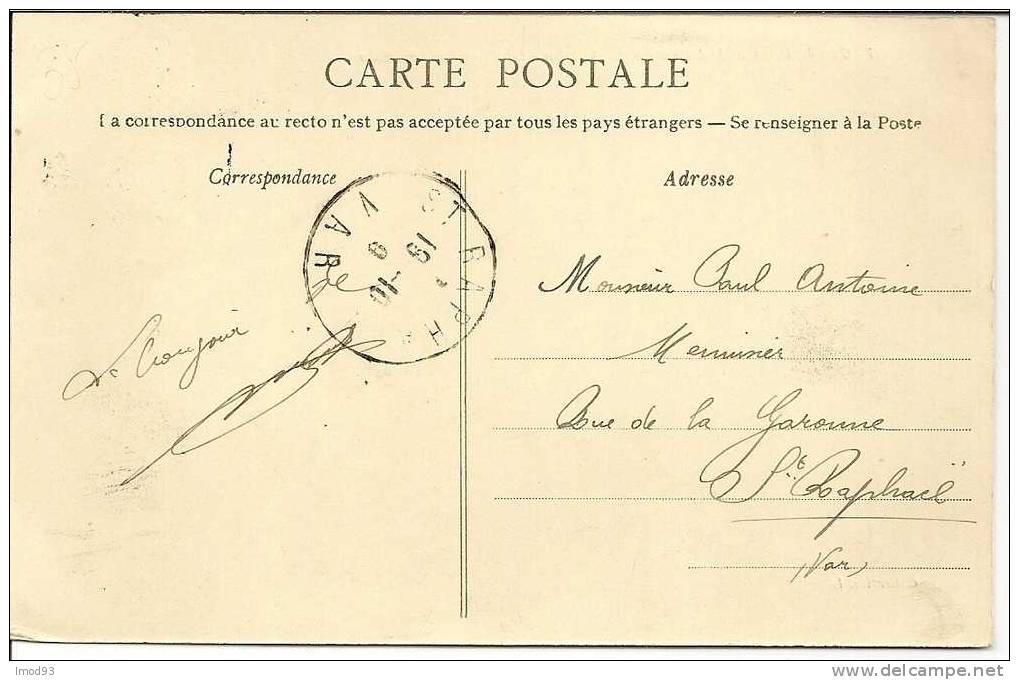 CARTE POSTALE
La correspondance au recto n'est pas acceptée par tous les pays étrangers — Se renseigner à la Poste
Correspondance
Adresse
ST RAPHA
VAR
19
9
-10
Le bonjour
Monsieur Paul Antoine
Menuisier
Rue de la Garonne
St. Raphaël
(Var)
lmod93
www.delcampe.net